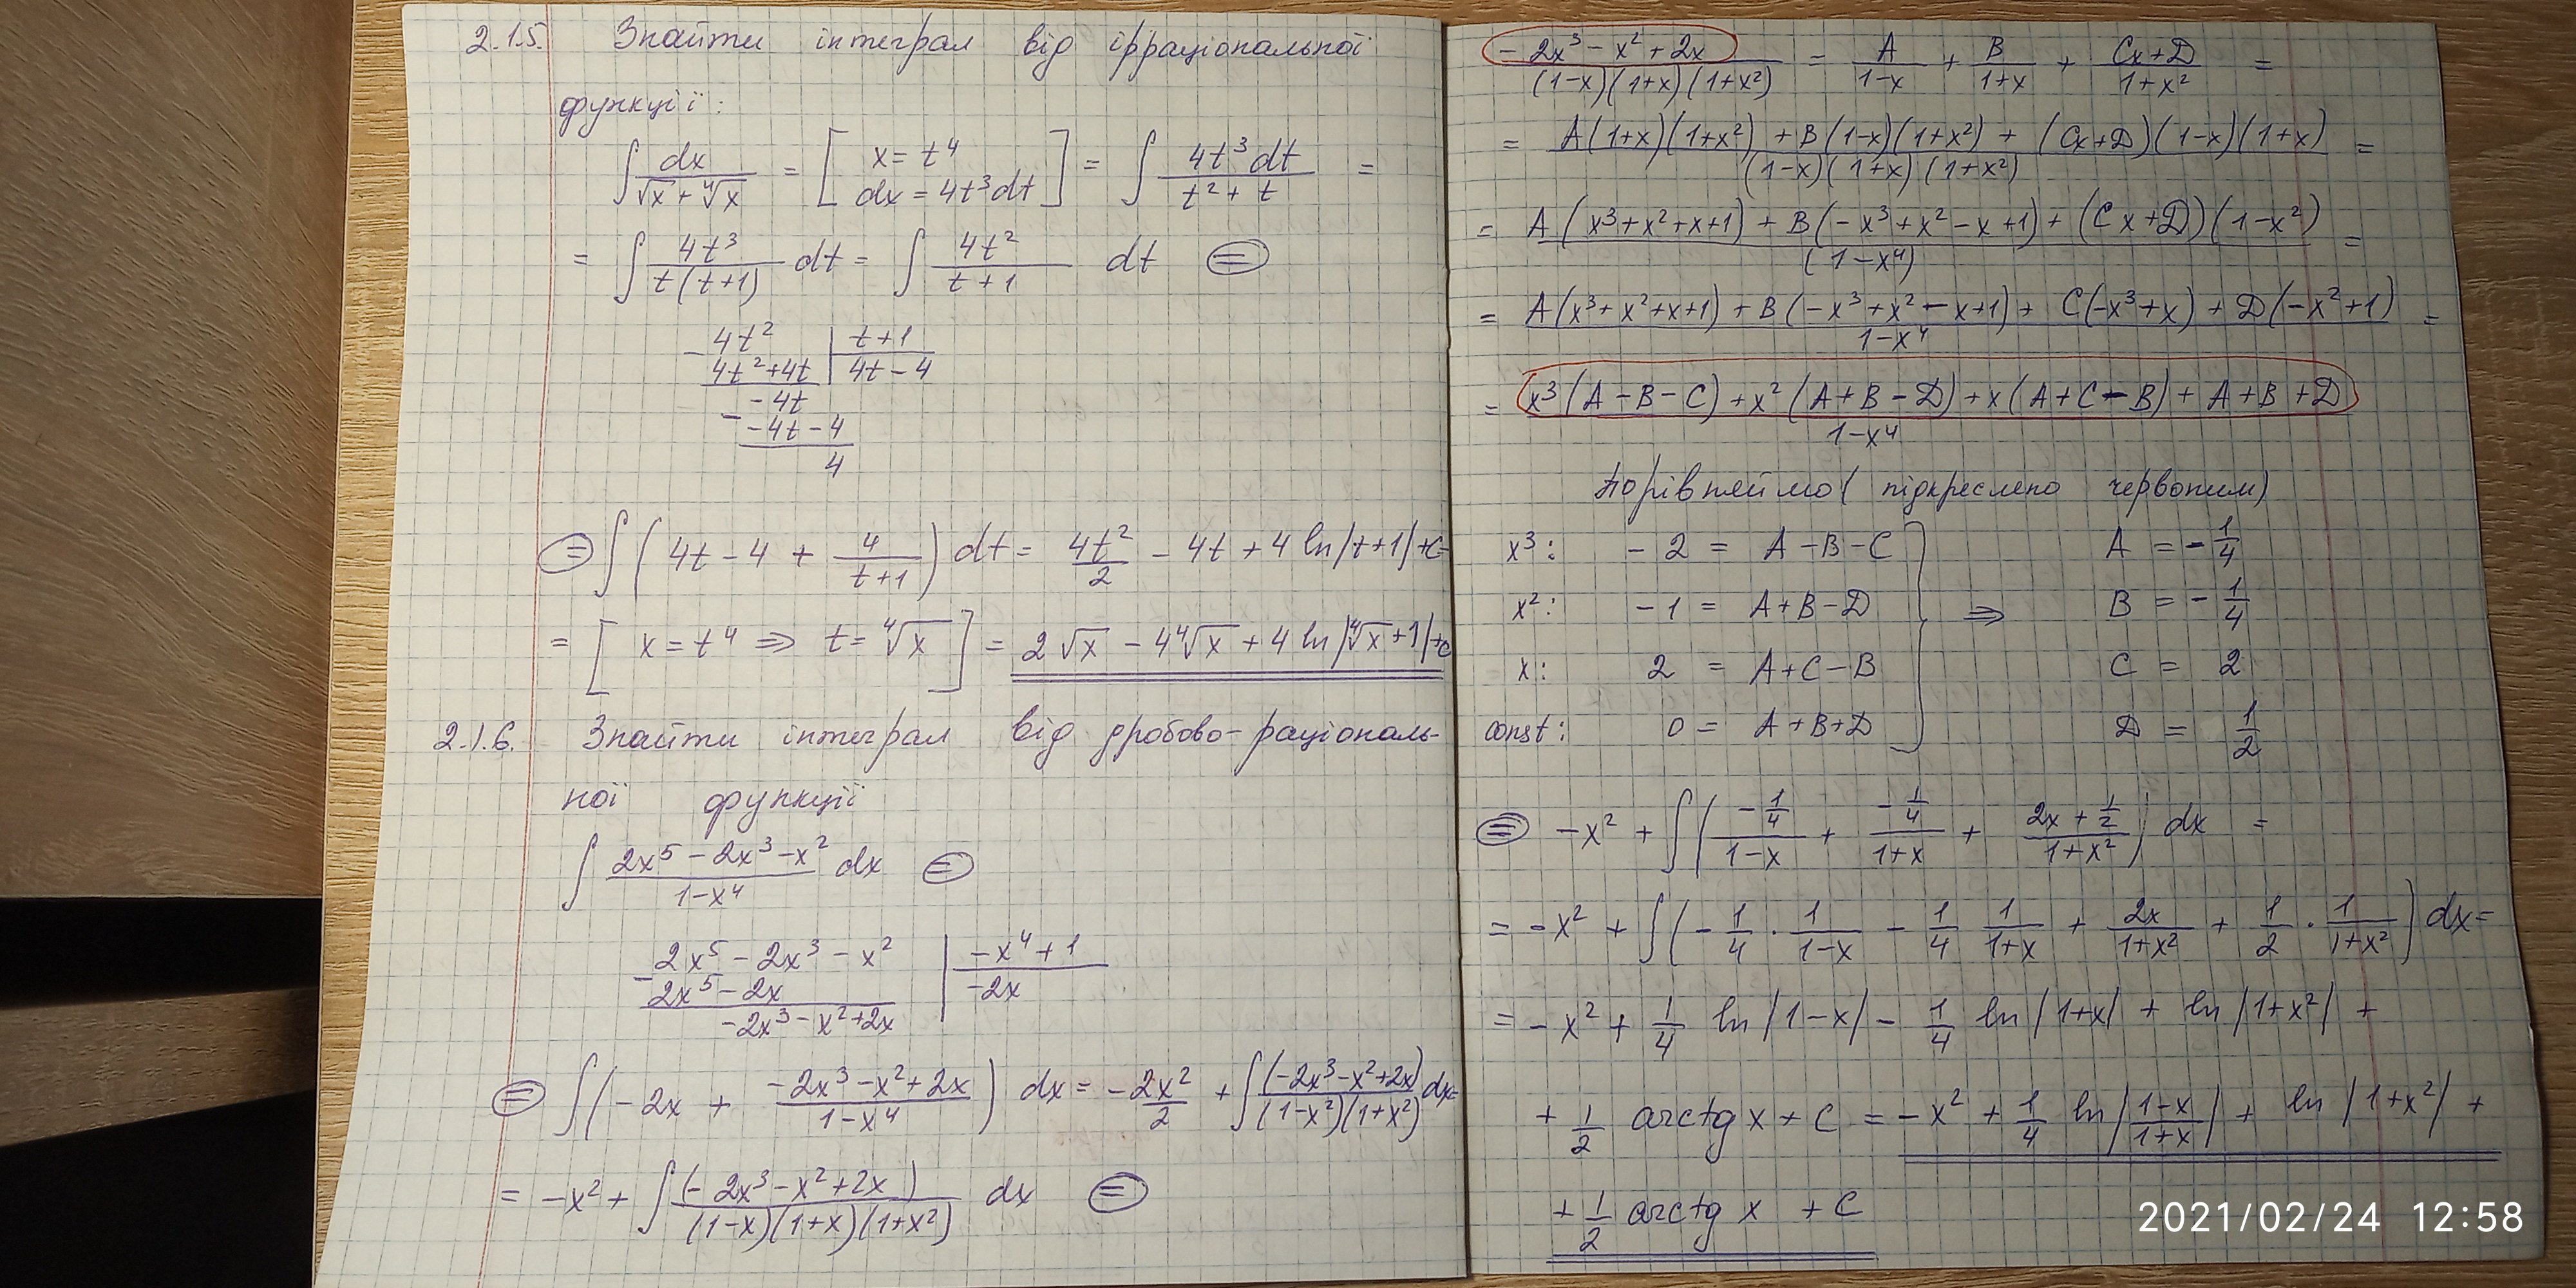 2.1.5. Знайти інтеграл від ірраціональної
функції:
∫ dx/(√x + ⁴√x) = [x = t⁴ dx = 4t³dt] = ∫ 4t³dt/(t² + t) =
= ∫ 4t³/(t(t+1)) dt = ∫ 4t²/(t+1) dt ⊜
− 4t² | t+1
4t²+4t | 4t − 4
− 4t
− −4t − 4
4
⊜ ∫(4t − 4 + 4/(t+1)) dt = 4t²/2 − 4t + 4 ln|t+1| + C =
= [x = t⁴ ⇒ t = ⁴√x] = 2√x − 4⁴√x + 4 ln|⁴√x + 1| + C
2.1.6. Знайти інтеграл від дробово-раціональ-
ної функції
∫ (2x⁵ − 2x³ − x²)/(1−x⁴) dx ⊜
− 2x⁵ − 2x³ − x² | −x⁴ + 1
2x⁵ − 2x | −2x
−2x³ − x² + 2x
⊜ ∫(−2x + (−2x³ − x² + 2x)/(1−x⁴)) dx = −2x²/2 + ∫ (−2x³−x²+2x)/((1−x²)(1+x²)) dx =
= −x² + ∫ (−2x³ − x² + 2x)/((1−x)(1+x)(1+x²)) dx ⊜
(−2x³ − x² + 2x)/((1−x)(1+x)(1+x²)) = A/(1−x) + B/(1+x) + (Cx+D)/(1+x²) =
= (A(1+x)(1+x²) + B(1−x)(1+x²) + (Cx+D)(1−x)(1+x))/((1−x)(1+x)(1+x²)) =
= (A(x³+x²+x+1) + B(−x³+x²−x+1) + (Cx+D)(1−x²))/(1−x⁴) =
= (A(x³+x²+x+1) + B(−x³+x²−x+1) + C(−x³+x) + D(−x²+1))/(1−x⁴) =
= (x³(A−B−C) + x²(A+B−D) + x(A+C−B) + A+B+D)/(1−x⁴)
Порівняймо (підкреслено червоним)
x³: −2 = A−B−C A = −1/4
x²: −1 = A+B−D ⇒ B = −1/4
x: 2 = A+C−B C = 2
const: 0 = A+B+D D = 1/2
⊜ −x² + ∫((−1/4)/(1−x) + (−1/4)/(1+x) + (2x + 1/2)/(1+x²)) dx =
= −x² + ∫(−1/4 · 1/(1−x) − 1/4 1/(1+x) + 2x/(1+x²) + 1/2 · 1/(1+x²)) dx =
= −x² + 1/4 ln|1−x| − 1/4 ln|1+x| + ln|1+x²| +
+ 1/2 arctg x + C = −x² + 1/4 ln|(1−x)/(1+x)| + ln|1+x²| +
+ 1/2 arctg x + C
2021/02/24 12:58